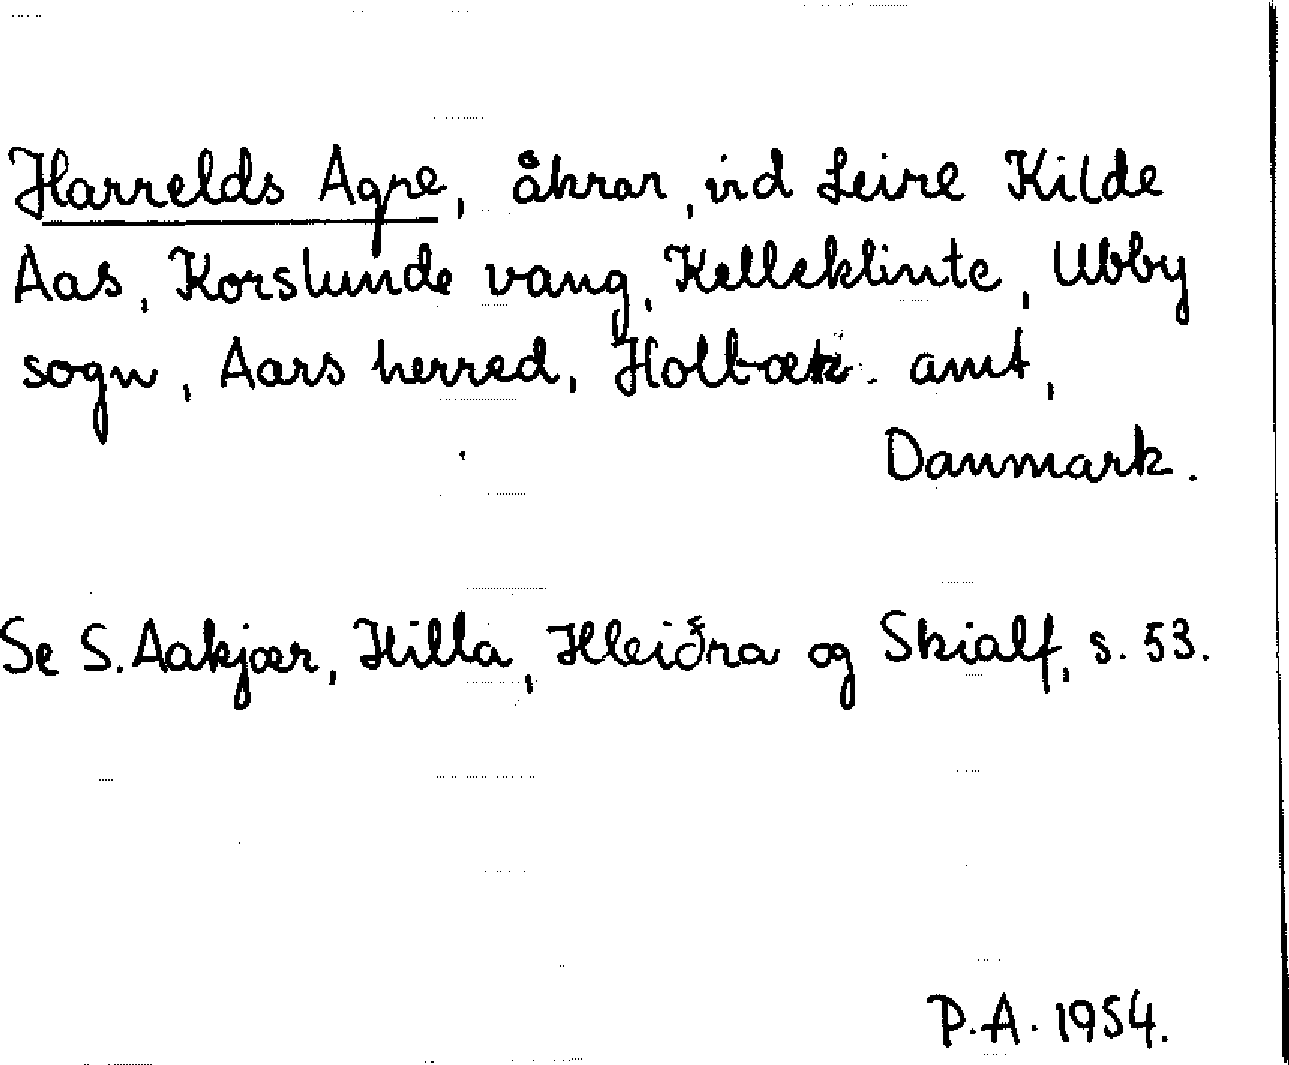 Harrelds Agre, åkrar, vid Leire Kilde
Aas, Korslunde vang, Kelleklinte, Ubby
sogn, Aars herred, Holbæk amt,
Danmark.
Se S. Aakjær, Hilla, Hleiðra og Skialf, s. 53.
P.A. 1954.